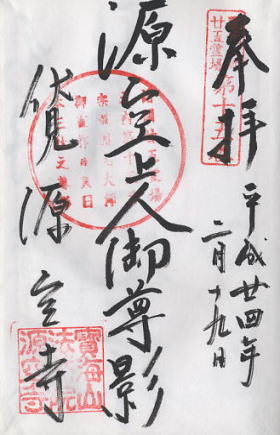 奉拝
平成廿四年
二月十九日
源空上人御尊影
伏見源空寺
廿五霊場
第十五
寶海山
法然院
源空寺